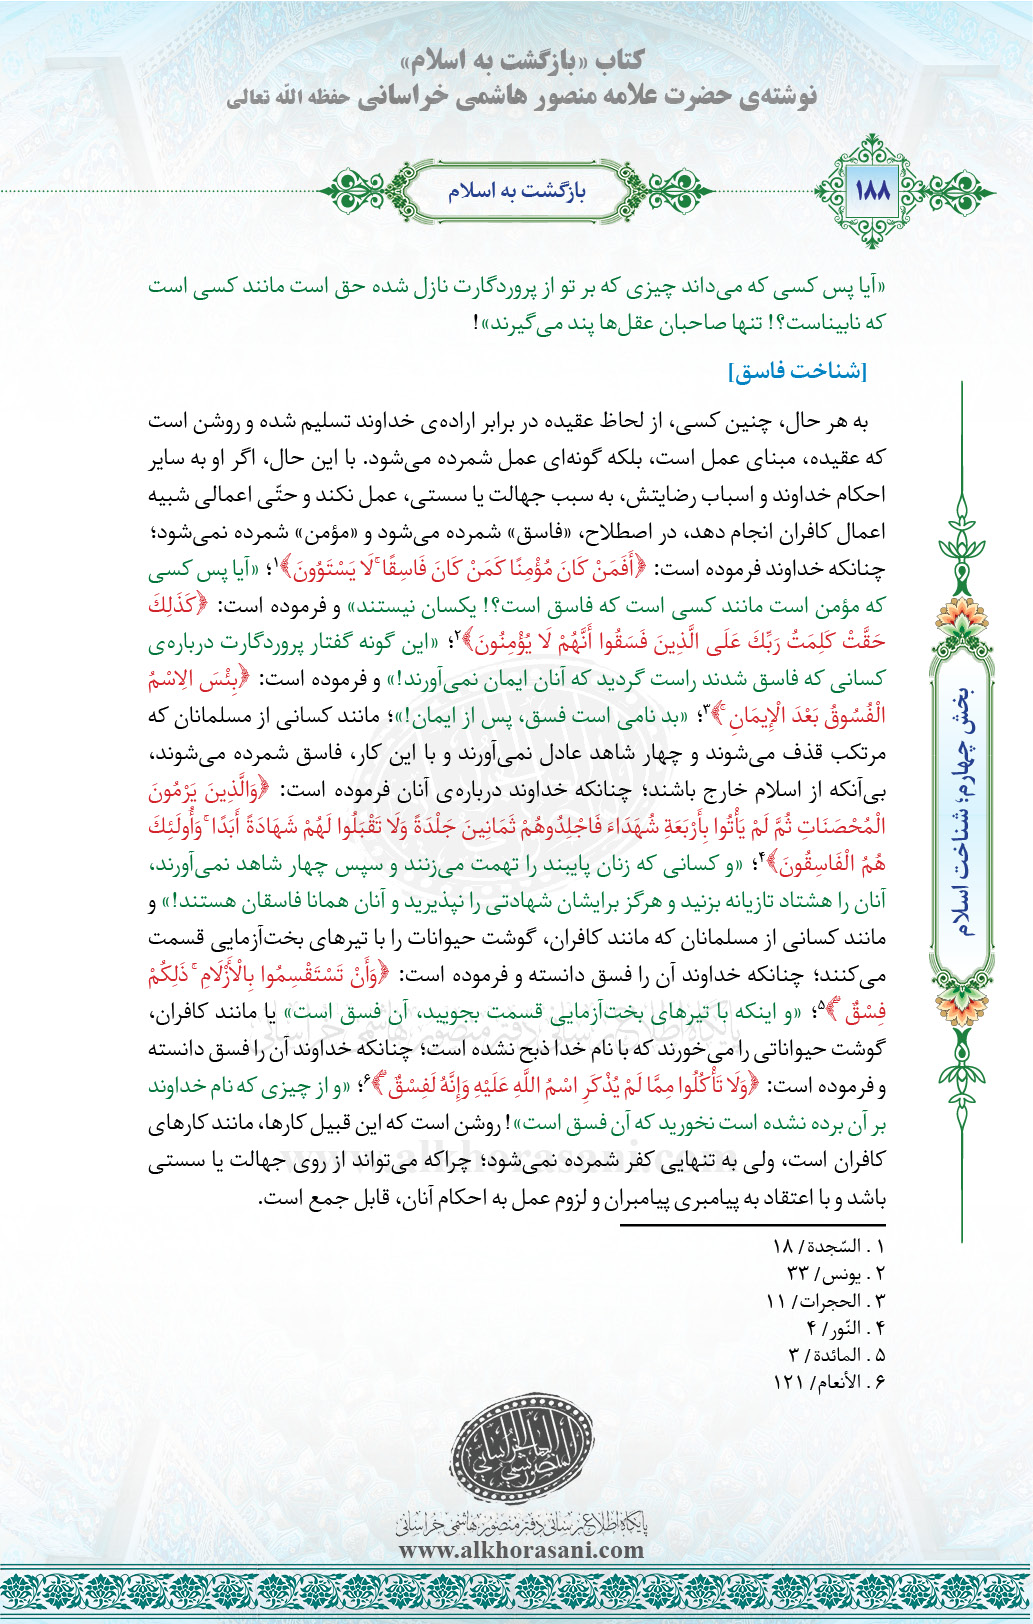 کتاب «بازگشت به اسلام»
نوشته‌ی حضرت علامه منصور هاشمی خراسانی حفظه الله تعالی
۱۸۸
بازگشت به اسلام
«آیا پس کسی که می‌داند چیزی که بر تو از پروردگارت نازل شده حق است مانند کسی است
که نابیناست؟! تنها صاحبان عقل‌ها پند می‌گیرند»!
[شناخت فاسق]
به هر حال، چنین کسی، از لحاظ عقیده در برابر اراده‌ی خداوند تسلیم شده و روشن است
که عقیده، مبنای عمل است، بلکه گونه‌ای عمل شمرده می‌شود. با این حال، اگر او به سایر
احکام خداوند و اسباب رضایتش، به سبب جهالت یا سستی، عمل نکند و حتّی اعمالی شبیه
اعمال کافران انجام دهد، در اصطلاح، «فاسق» شمرده می‌شود و «مؤمن» شمرده نمی‌شود؛
چنانکه خداوند فرموده است: ﴿أَفَمَنْ كَانَ مُؤْمِنًا كَمَنْ كَانَ فَاسِقًا ۚ لَا يَسْتَوُونَ﴾۱؛ «آیا پس کسی
که مؤمن است مانند کسی است که فاسق است؟! یکسان نیستند» و فرموده است: ﴿كَذَلِكَ
حَقَّتْ كَلِمَتُ رَبِّكَ عَلَى الَّذِينَ فَسَقُوا أَنَّهُمْ لَا يُؤْمِنُونَ﴾۲؛ «این گونه گفتار پروردگارت درباره‌ی
کسانی که فاسق شدند راست گردید که آنان ایمان نمی‌آورند!» و فرموده است: ﴿بِئْسَ الِاسْمُ
الْفُسُوقُ بَعْدَ الْإِيمَانِ ۚ﴾۳؛ «بد نامی است فسق، پس از ایمان!»؛ مانند کسانی از مسلمانان که
مرتکب قذف می‌شوند و چهار شاهد عادل نمی‌آورند و با این کار، فاسق شمرده می‌شوند،
بی‌آنکه از اسلام خارج باشند؛ چنانکه خداوند درباره‌ی آنان فرموده است: ﴿وَالَّذِينَ يَرْمُونَ
الْمُحْصَنَاتِ ثُمَّ لَمْ يَأْتُوا بِأَرْبَعَةِ شُهَدَاءَ فَاجْلِدُوهُمْ ثَمَانِينَ جَلْدَةً وَلَا تَقْبَلُوا لَهُمْ شَهَادَةً أَبَدًا ۚ وَأُولَئِكَ
هُمُ الْفَاسِقُونَ﴾۴؛ «و کسانی که زنان پایبند را تهمت می‌زنند و سپس چهار شاهد نمی‌آورند،
آنان را هشتاد تازیانه بزنید و هرگز برایشان شهادتی را نپذیرید و آنان همانا فاسقان هستند!» و
مانند کسانی از مسلمانان که مانند کافران، گوشت حیوانات را با تیرهای بخت‌آزمایی قسمت
می‌کنند؛ چنانکه خداوند آن را فسق دانسته و فرموده است: ﴿وَأَنْ تَسْتَقْسِمُوا بِالْأَزْلَامِ ۚ ذَلِكُمْ
فِسْقٌ ﴾۵؛ «و اینکه با تیرهای بخت‌آزمایی قسمت بجویید، آن فسق است» یا مانند کافران،
گوشت حیواناتی را می‌خورند که با نام خدا ذبح نشده است؛ چنانکه خداوند آن را فسق دانسته
و فرموده است: ﴿وَلَا تَأْكُلُوا مِمَّا لَمْ يُذْكَرِ اسْمُ اللَّهِ عَلَيْهِ وَإِنَّهُ لَفِسْقٌ ﴾۶؛ «و از چیزی که نام خداوند
بر آن برده نشده است نخورید که آن فسق است»! روشن است که این قبیل کارها، مانند کارهای
کافران است، ولی به تنهایی کفر شمرده نمی‌شود؛ چراکه می‌تواند از روی جهالت یا سستی
باشد و با اعتقاد به پیامبری پیامبران و لزوم عمل به احکام آنان، قابل جمع است.
۱ . السّجدة/ ۱۸
۲ . یونس/ ۳۳
۳ . الحجرات/ ۱۱
۴ . النّور/ ۴
۵ . المائدة/ ۳
۶ . الأنعام/ ۱۲۱
بخش چهارم؛ شناخت اسلام
پایگاه اطلاع‌رسانی دفتر منصور هاشمی خراسانی
www.alkhorasani.com
المنصور الهاشمي الخراساني
پایگاه اطلاع‌رسانی دفتر منصور هاشمی خراسانی
www.alkhorasani.com